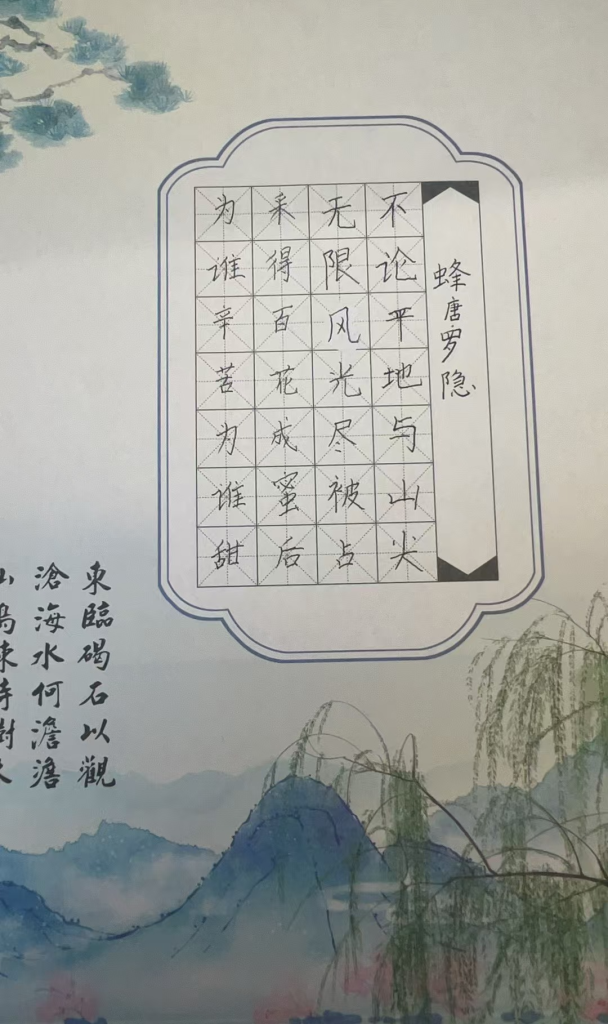 蜂唐罗隐
不论平地与山尖
无限风光尽被占
采得百花成蜜后
为谁辛苦为谁甜
東臨碣石以觀
滄海水何澹澹